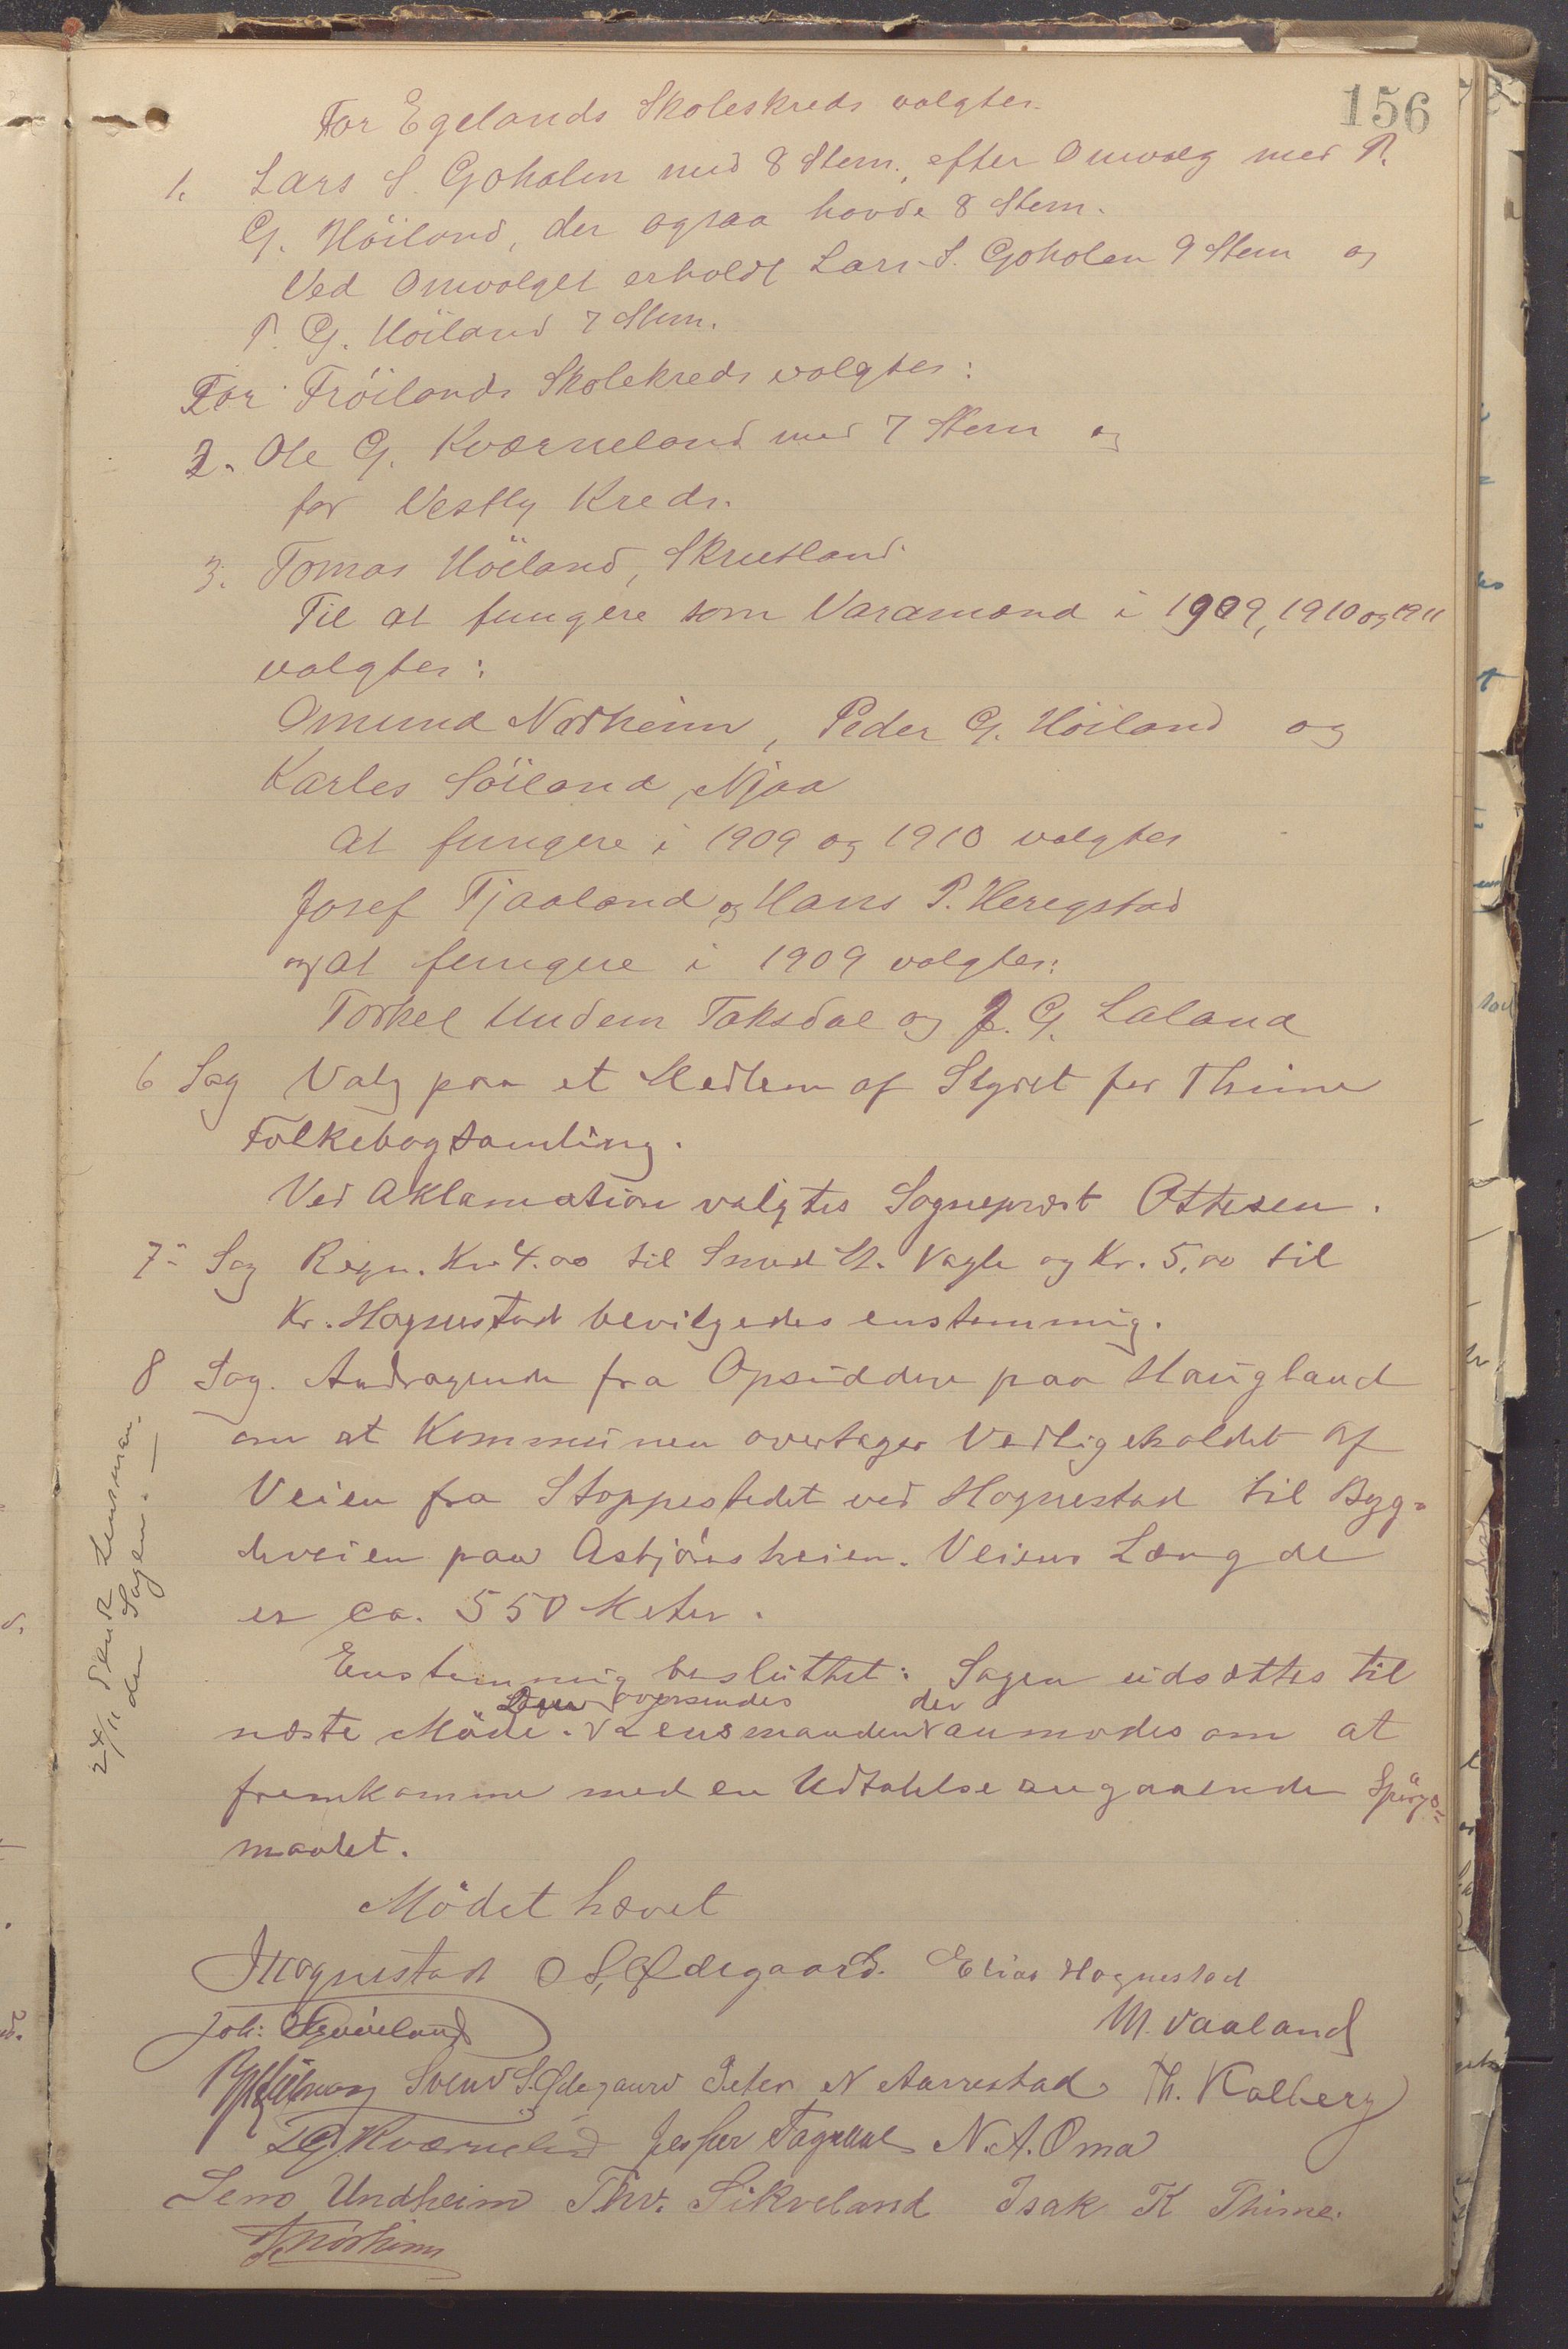 156
For Egelands Skoleskreds valgtes.
1. Lars S. Goholen med 8 Stem., efter Omvalg med P.
G. Höiland, der ogsaa havde 8 Stem.
Ved Omvalget erholdt Lars S. Goholen 9 Stem og
P. G. Höiland 7 Stem.
For Fröilands Skolekreds valgtes:
2. Ole G. Kværneland med 7 Stem og
for Vestly Kreds.
3. Tomas Höiland, Skrutland.
Til at fungere som Varamænd i 1909, 1910 og 1911
valgtes:
Omund Norheim, Peder G. Höiland og
Karles Söiland, Njaa
at fungere i 1909 og 1910 valgtes
Josef Tjaaland og Hans P. Heregstad
og at fungere i 1909 valgtes:
Torkel Undem Taksdal og J. G. Laland
6 Sag Valg paa et Medlem af Styret for Thime
Folkebogsamling.
Ved Aklamation valgtes Sogneprest Ottesen.
7- Sag Regn. Kr. 4.00 til Smed Vagle og Kr. 5.00 til
Kr. Hognestad bevilgedes enstemmig.
8 Sag. Andragende fra Opsiddere paa Haugland
om at Kommunen overtager Vedligeholdet af
Veien fra Stoppestedet ved Hognestad til Byg-
deveien paa Asbjönsheien. Veiens Længde
er ca. 550 Meter.
Enstemmig besluttet: Sagen udsættes til
oversendes der
næste Möde. Lensmanden anmodes om at
fremkomme med en Udtalelse angaaende Spörgs-
maalet.
24/11 Lensman.
den Sagen. —
Mödet hævet
J Hognestad O S. Ødegaard. Elias Hognestad
Joh: M. Vaaland
Svend S. Ødegaard Peter N Aarrestad Th. Kalberg
Kværneland Jesper Taxdal N. A. Oma
Undheim Thv. Sikveland Isak K Thime.
Norheim